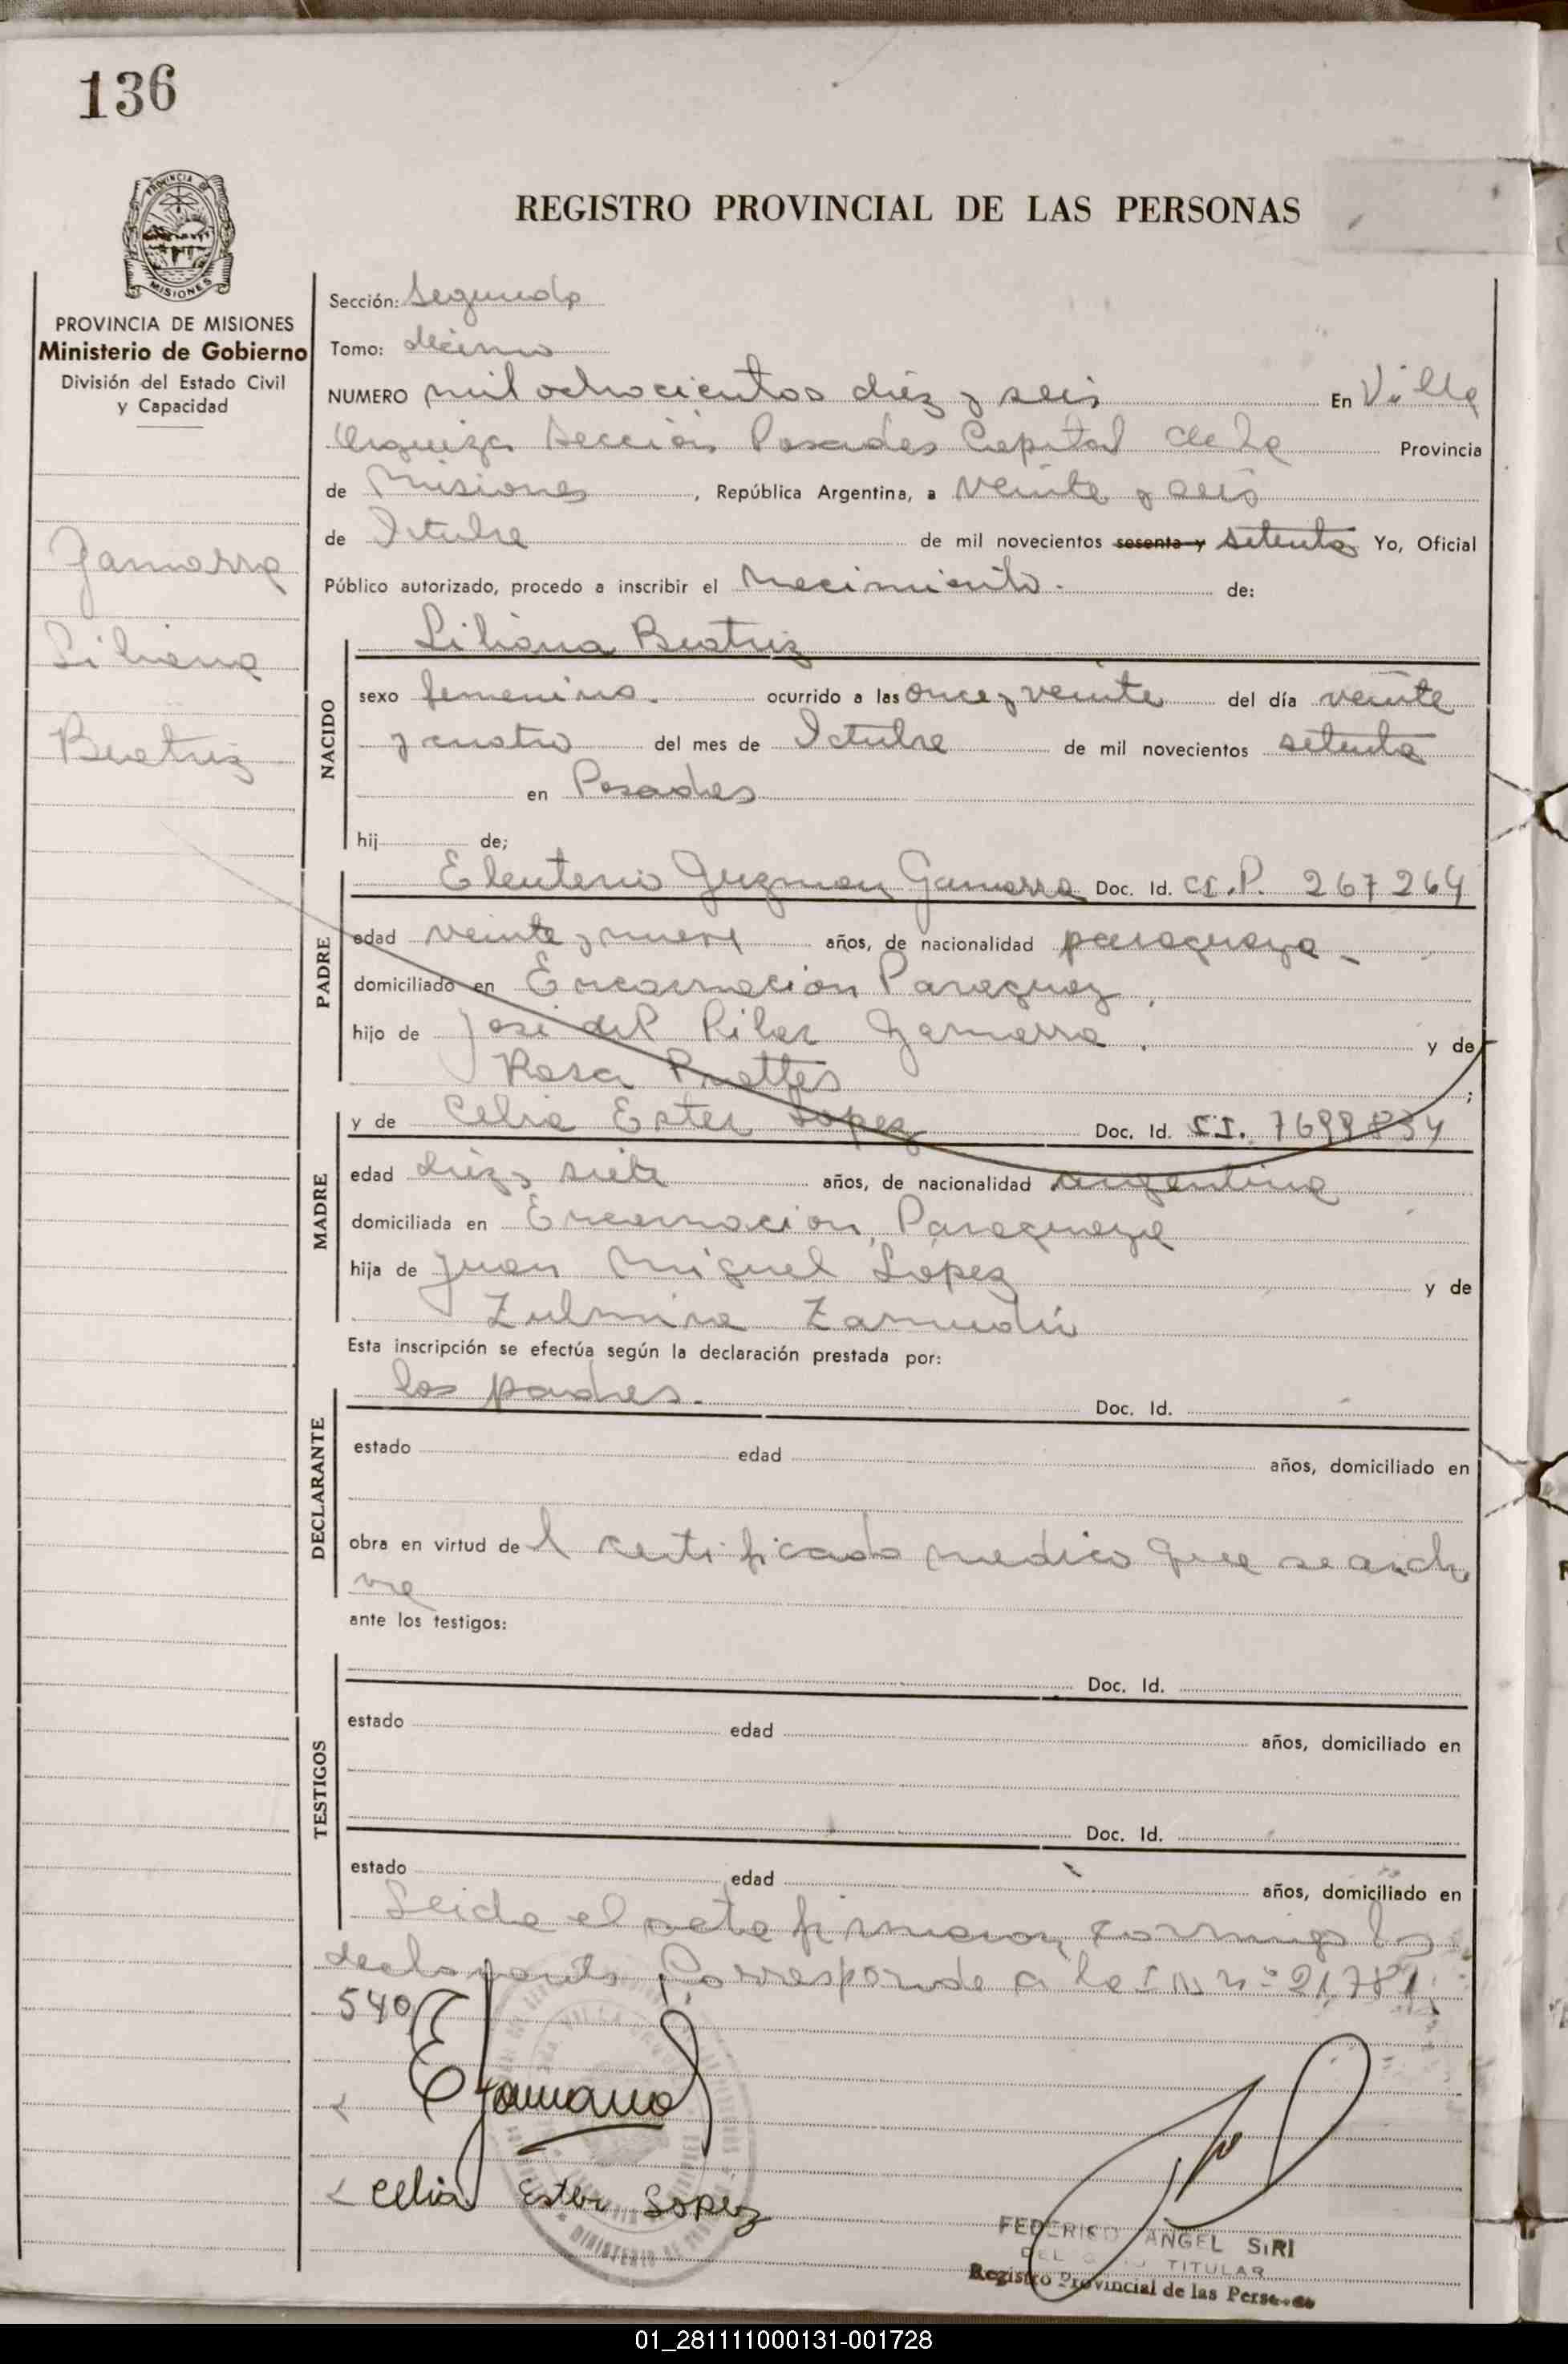 136
PROVINCIA DE
MISIONES
REGISTRO PROVINCIAL DE LAS PERSONAS
PROVINCIA DE MISIONES
Ministerio de Gobierno
División del Estado Civil
y Capacidad
Gamarra
Liliana
Beatriz
Sección: Segunda
Tomo: décimo
NUMERO mil ochocientos diez y seis En Villa
Urquiza Sección Posadas Capital de la Provincia
de Misiones, República Argentina, a veinte y seis
de Octubre de mil novecientos sesenta y setenta Yo, Oficial
Público autorizado, procedo a inscribir el nacimiento. de:
NACIDO
Liliana Beatriz
sexo femenino. ocurrido a las once y veinte del día veinte
y cuatro del mes de Octubre de mil novecientos setenta
en Posadas
hij de;
PADRE
Eleuterio Guzman Gamarra Doc. Id. CI.P. 267264
edad veinte y nueve años, de nacionalidad paraguaya
domiciliado en Encarnacion Paraguay.
hijo de José del Pilar Gamarra. y de
Rosa ;
MADRE
y de Celia Ester Lopez Doc. Id. C.I. 7699834
edad diez y siete años, de nacionalidad argentina
domiciliada en Encarnacion, Paraguaya
hija de Juan Miguel López y de
Zulmira Zamudio
Esta inscripción se efectúa según la declaración prestada por:
DECLARANTE
los padres. Doc. Id.
estado edad años, domiciliado en
obra en virtud de l certificado medico que se archi
va
ante los testigos:
TESTIGOS
Doc. Id.
estado edad años, domiciliado en
Doc. Id.
estado edad años, domiciliado en
Leida el acta firman conmigo los
declarantes. Corresponde a la nº 21,781,
540
EGamarra
Celia Ester Lopez
FEDERICO ANGEL SIRI
TITULAR
Registro Provincial de las Personas
01_281111000131-001728